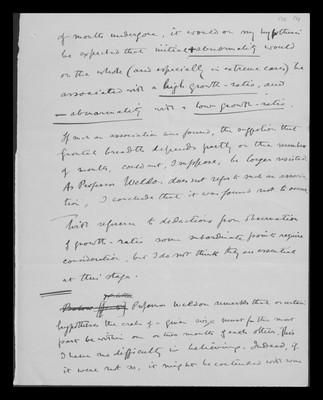 of moults undergone, it would on my hypothesis
be expected that initial + abnormality would
on the whole (and especially in extreme cases) be
associated with a high growth-ratio, and
- abnormality with a low growth-ratio.
If such an association were found, the suggestion that
frontal breadth depends partly on the number
of moults, could not, I suppose, be longer resisted.
As Professor Weldon does not refer to such an associa-
tion, I conclude that it was found not to occur.
With reference to deductions from observation
of growth-ratios some subordinate points require
consideration, but I do not think they are essential
at this stage.
Professor Weldon remarks that on certain
hypotheses the crabs of a given size must for the most
part be within one or two months of each other. This
I have no difficulty in believing. Indeed, if
it were not so, it might be contended with some